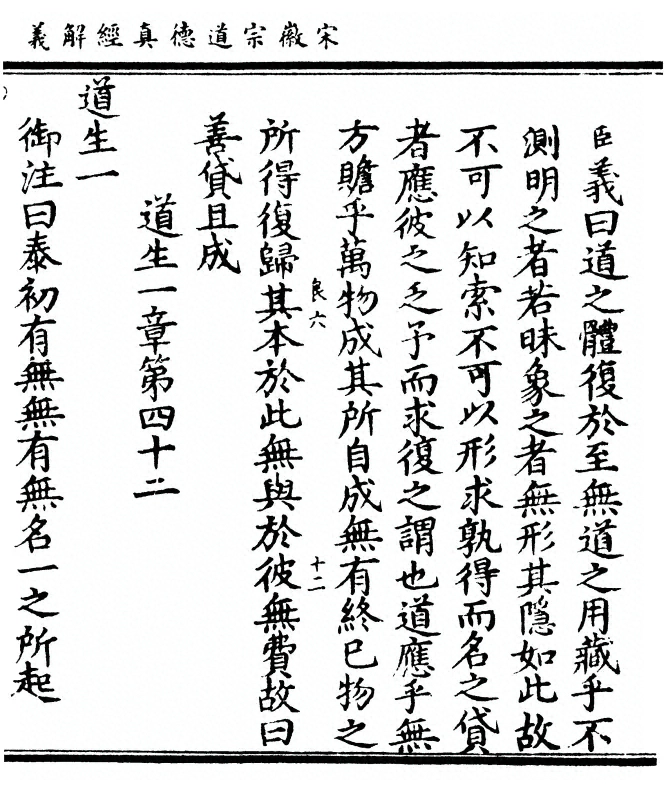 宋徽宗道德真經解義
臣義曰道之體復於至無道之用藏乎不
測明之者若昧象之者無形其隱如此故
不可以知索不可以形求孰得而名之貸
者應彼之乏予而求復之謂也道應乎無
方贍乎萬物成其所自成無有終已物之
良六
十二
所得復歸其本於此無與於彼無費故曰
善貸且成
道生一章第四十二
道生一
御注曰泰初有無無有無名一之所起